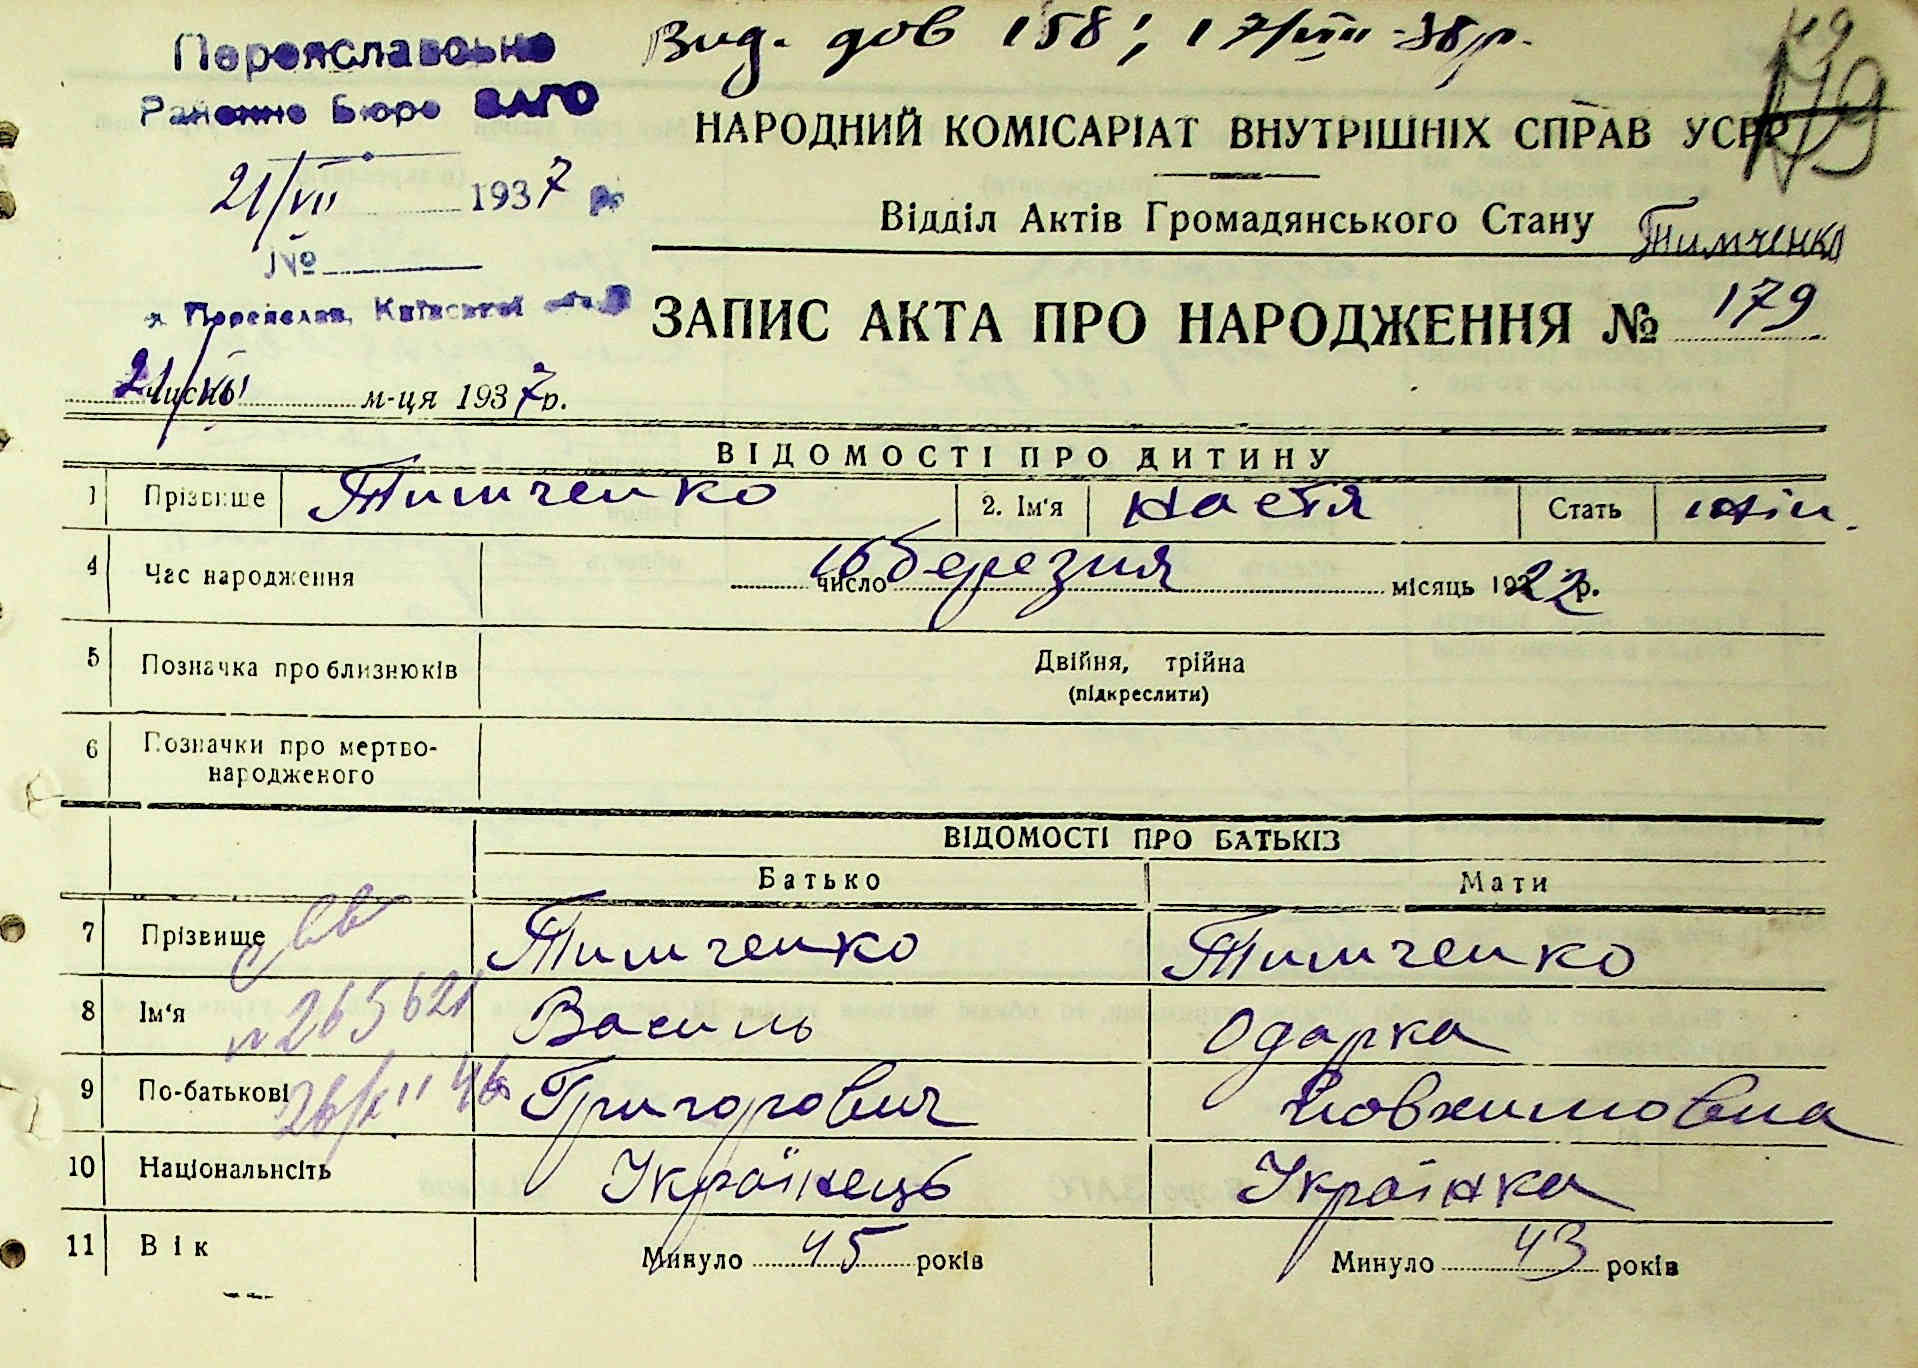 Вид. дов 158; 17/VIII-38р.
179
179
Переяславське
Районне Бюро ЗАГС
21/VII 1937 р.
№
м. Переяслав, Київської обл.
21/VII числа м-ця 1937р.
НАРОДНИЙ КОМІСАРІАТ ВНУТРІШНІХ СПРАВ УСРР
Відділ Актів Громадянського Стану
Тимченко
ЗАПИС АКТА ПРО НАРОДЖЕННЯ № 179
ВІДОМОСТІ ПРО ДИТИНУ
1 Прізвище Тимченко 2. Ім'я Настя Стать жін.
4 Час народження 16 число березня місяць 1922 р.
5 Позначка про близнюків Двійня, трійна
(підкреслити)
6 Позначки про мертво-
народженого
ВІДОМОСТІ ПРО БАТЬКІВ
Батько Мати
7 Прізвище Тимченко Тимченко
8 Ім'я Василь Одарка
9 По-батькові Григорович Йовхимовна
10 Національнсіть Українець Українка
11 Вік Минуло 45 років Минуло 43 років
св
№265621
26/II 46